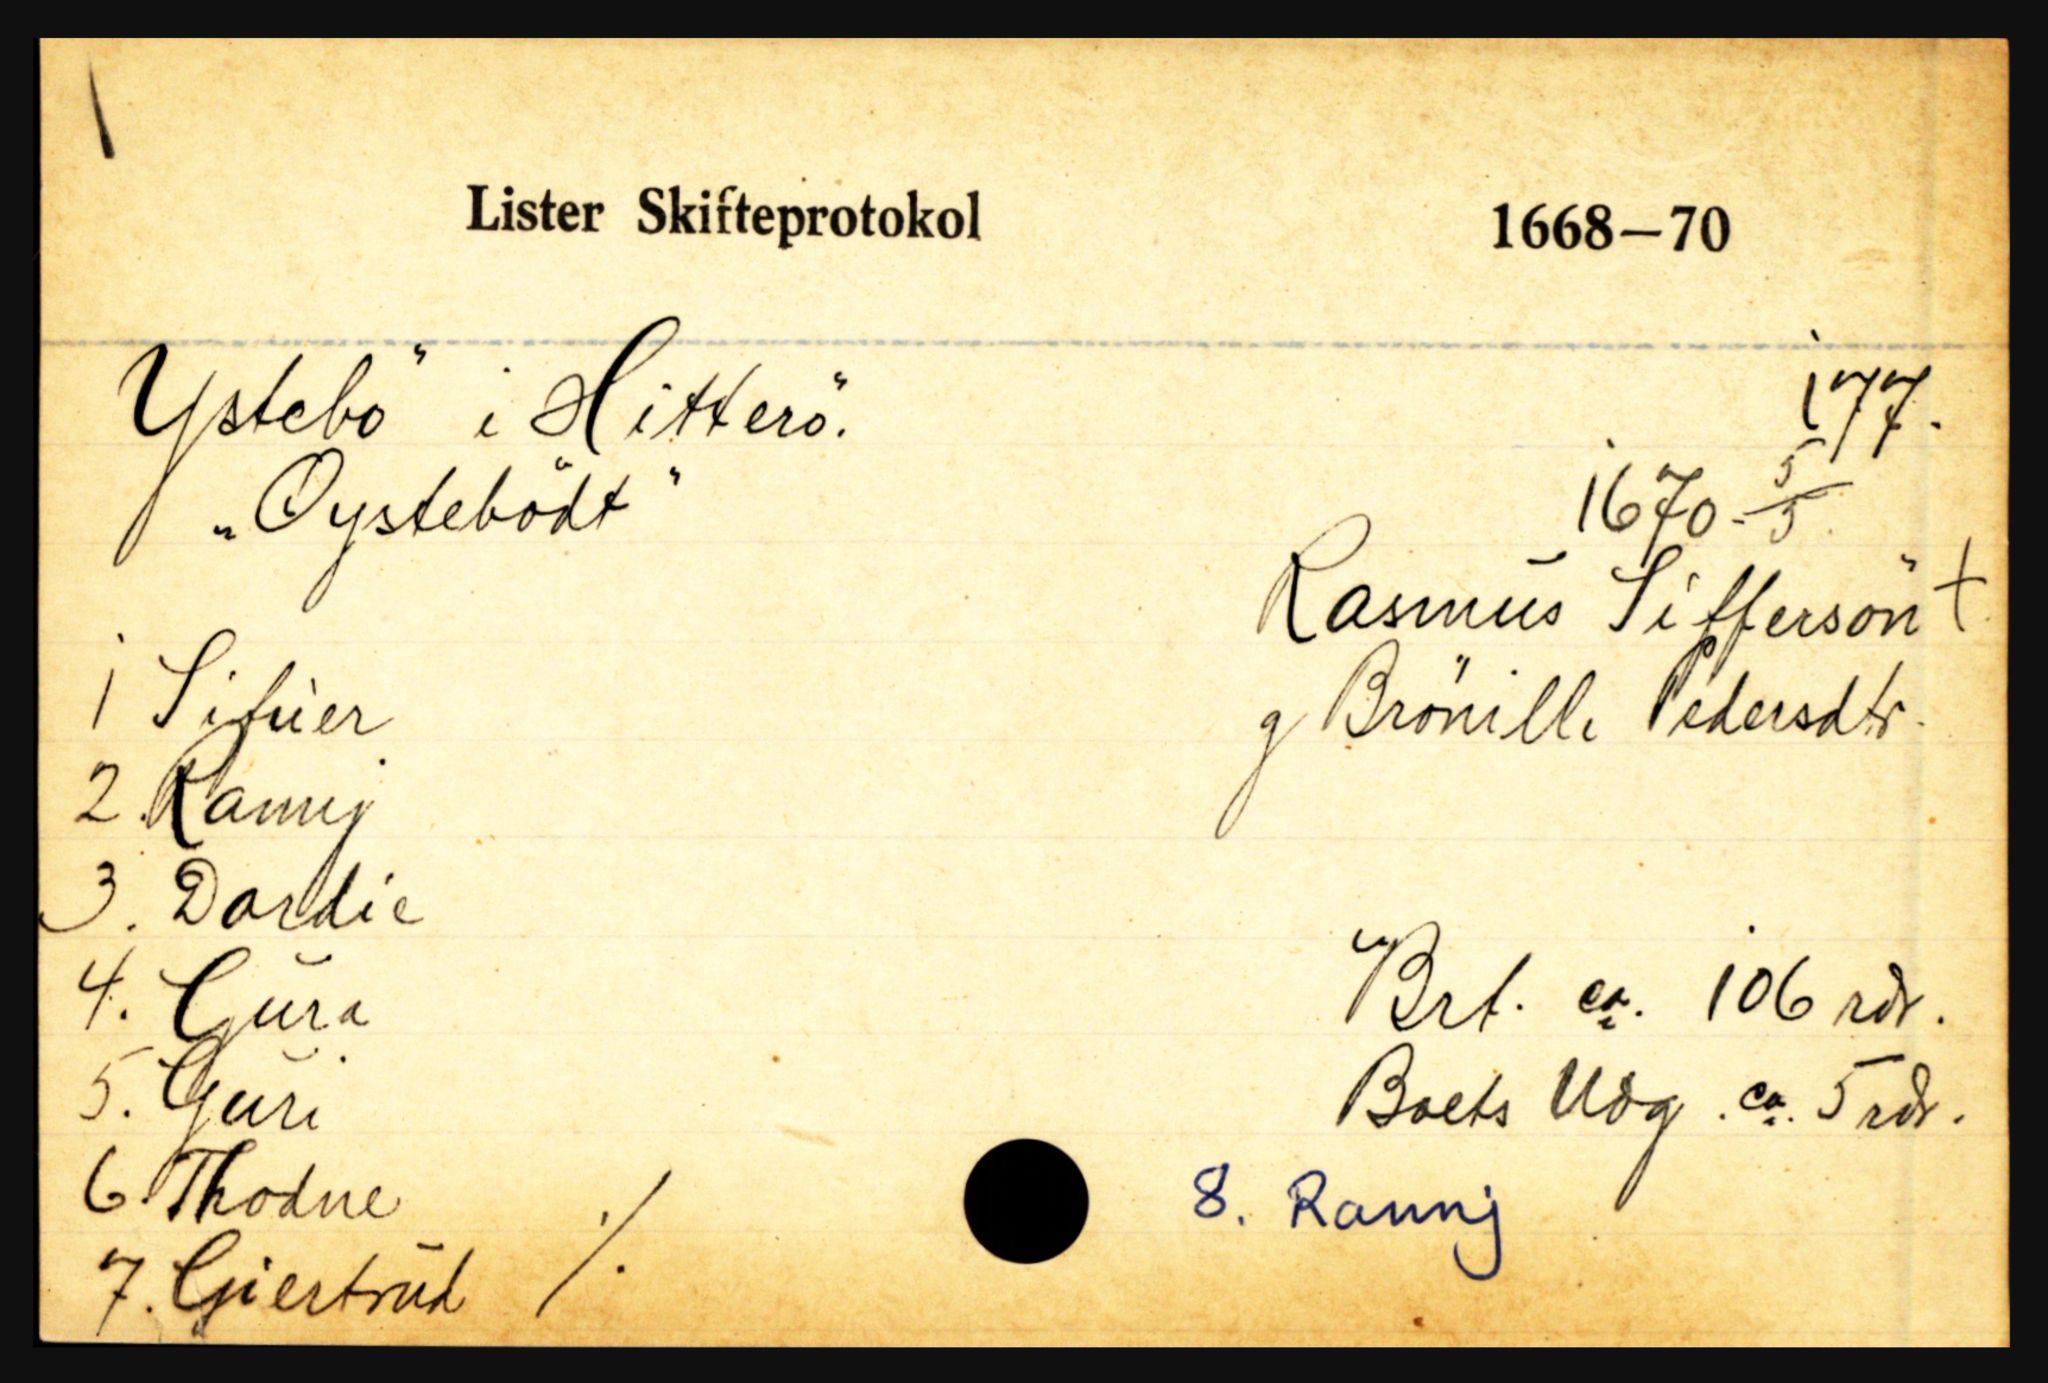 Lister Skifteprotokol 1668—70
Ystebö i Hitterö. 177.
"Oystebödt" 1670 - 5/5.
Rasmus Siffersön †
g Brönille Pedersdtr.
1 Sifuer
2. Rannj
3. Dordie
4. Gura
5. Guri
6. Thodne
7. Giertrud ./.
Brt. ca. 106 rdr.
Boets Udg. ca. 5 rdr.
8. Rannj